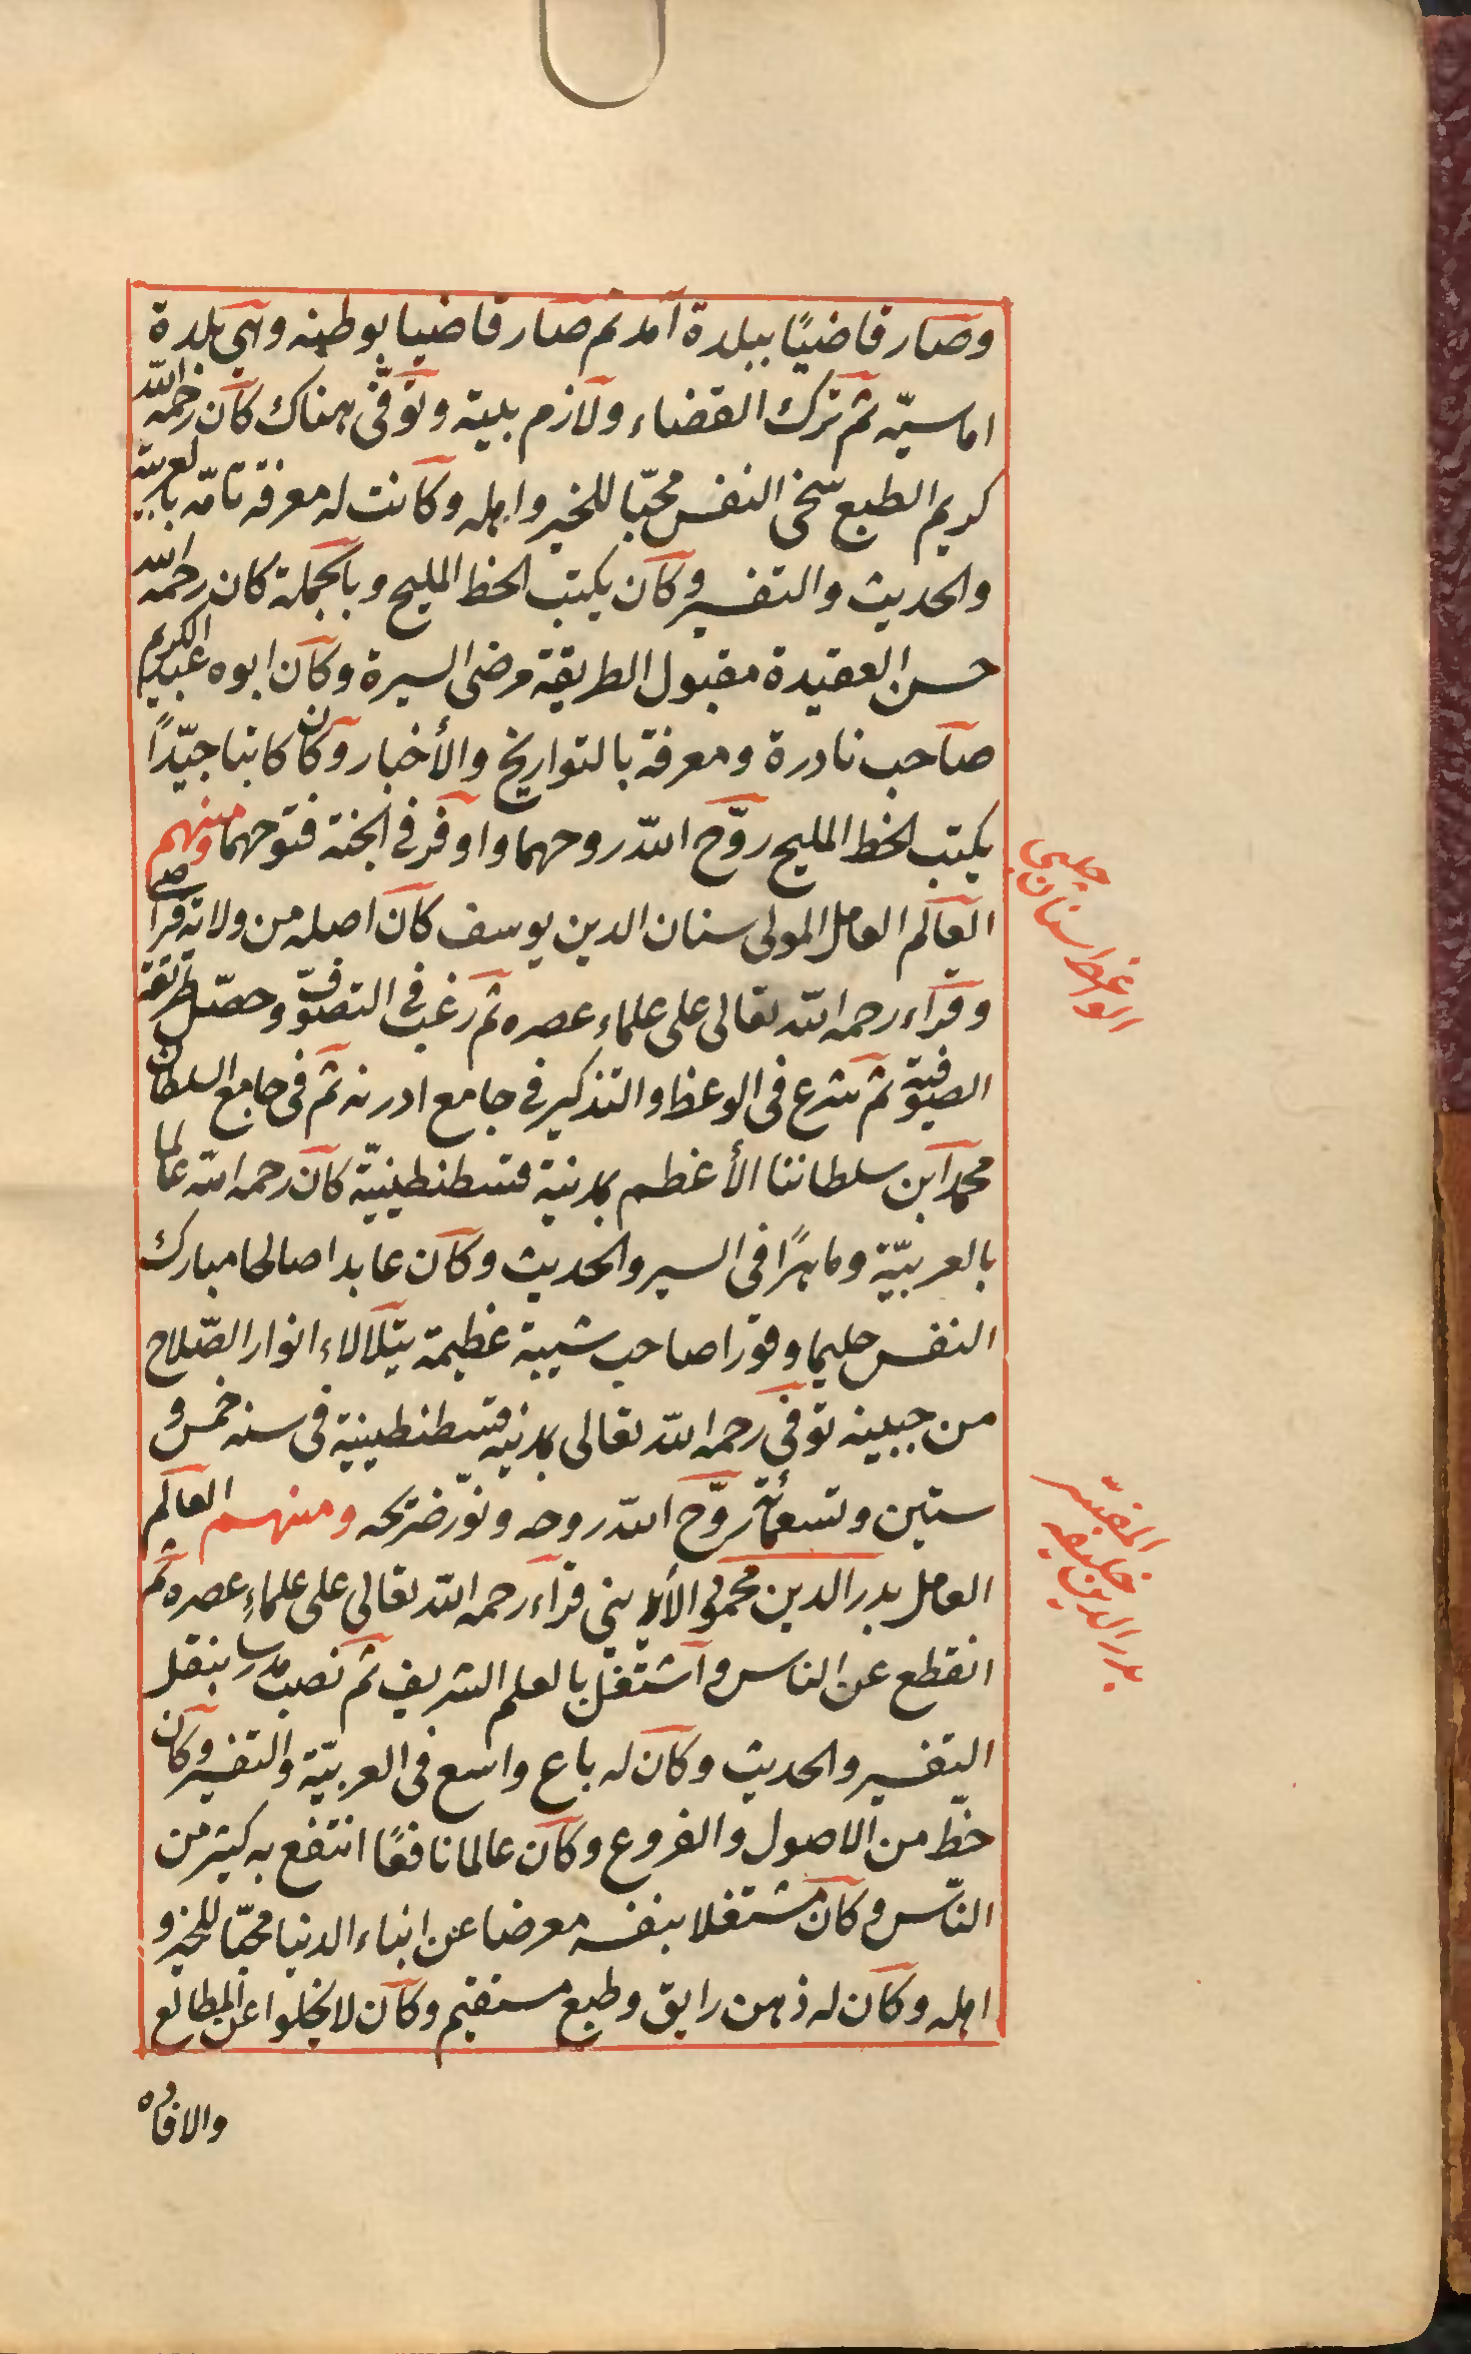 وصار قاضيًا ببلدة آمد ثم صار قاضيا بوطنه وهي بلدة
اماسيّه ثم ترك القضاء ولازم بيته وتوفّى هناك كان رحمه الله
كريم الطبع سخى النفس محبّا للخير واهله وكانت له معرفة تامّه بالعربيّة
والحديث والتفسير وكان يكتب الخط المليح وبالجملة كان رحمه الله
حسن العقيدة مقبول الطريقة مرضى السيرة وكان ابوه عبد الكريم
صاحب نادرة ومعرفة بالتواريخ والأخبار وكان كاتبا جيّدًا
يكتب الخط المليح روّح الله روحهما واوفر فى الجنة فتوحهما ومنهم
العالم العامل المولى سنان الدين يوسف كان اصله من ولاية قراصى
وقراء رحمه الله تعالى على علماء عصره ثم رغب فى التصوّف وحصّل طريقة
الصوفية ثم شرع فى الوعظ والتذكير فى جامع ادرنه ثم فى جامع السلطان
محمد ابن سلطاننا الأعظم بمدينة قسطنطينيّة كان رحمه الله عالما
بالعربيّة وماهرًا فى السير والحديث وكان عابدا صالحا مبارك
النفس حليما وقورا صاحب شيبة عظيمة يتلالاء انوار الصّلاح
من جبينه توفى رحمه الله تعالى بمدينه قسطنطينية فى سنه خمس و
ستين وتسعمأئة روّح الله روحه ونوّر ضريحه ومنهم العالم
العامل بدر الدين محمود الأيدينى قراء رحمه الله تعالى على علماءِ عصره ثم
انقطع عن الناس واشتغل بالعلم الشريف ثم نصب مدرسا بنقل
التفسير والحديث وكان له باع واسع فى العربيّة والتفسير وكان
حظّ من الاصول والفروع وكان عالما نافعًا انتفع به كثير من
النّاس وكان مشتغلا بنفسه معرضا عن ابناء الدنيا محبّا للخير و
اهله وكان له ذهن رايق وطبع مستقيم وكان لا يخلوا عن المطالع
والافاده
الواعظ سنان چلبى
المفسّر
بدر الدين خليفه